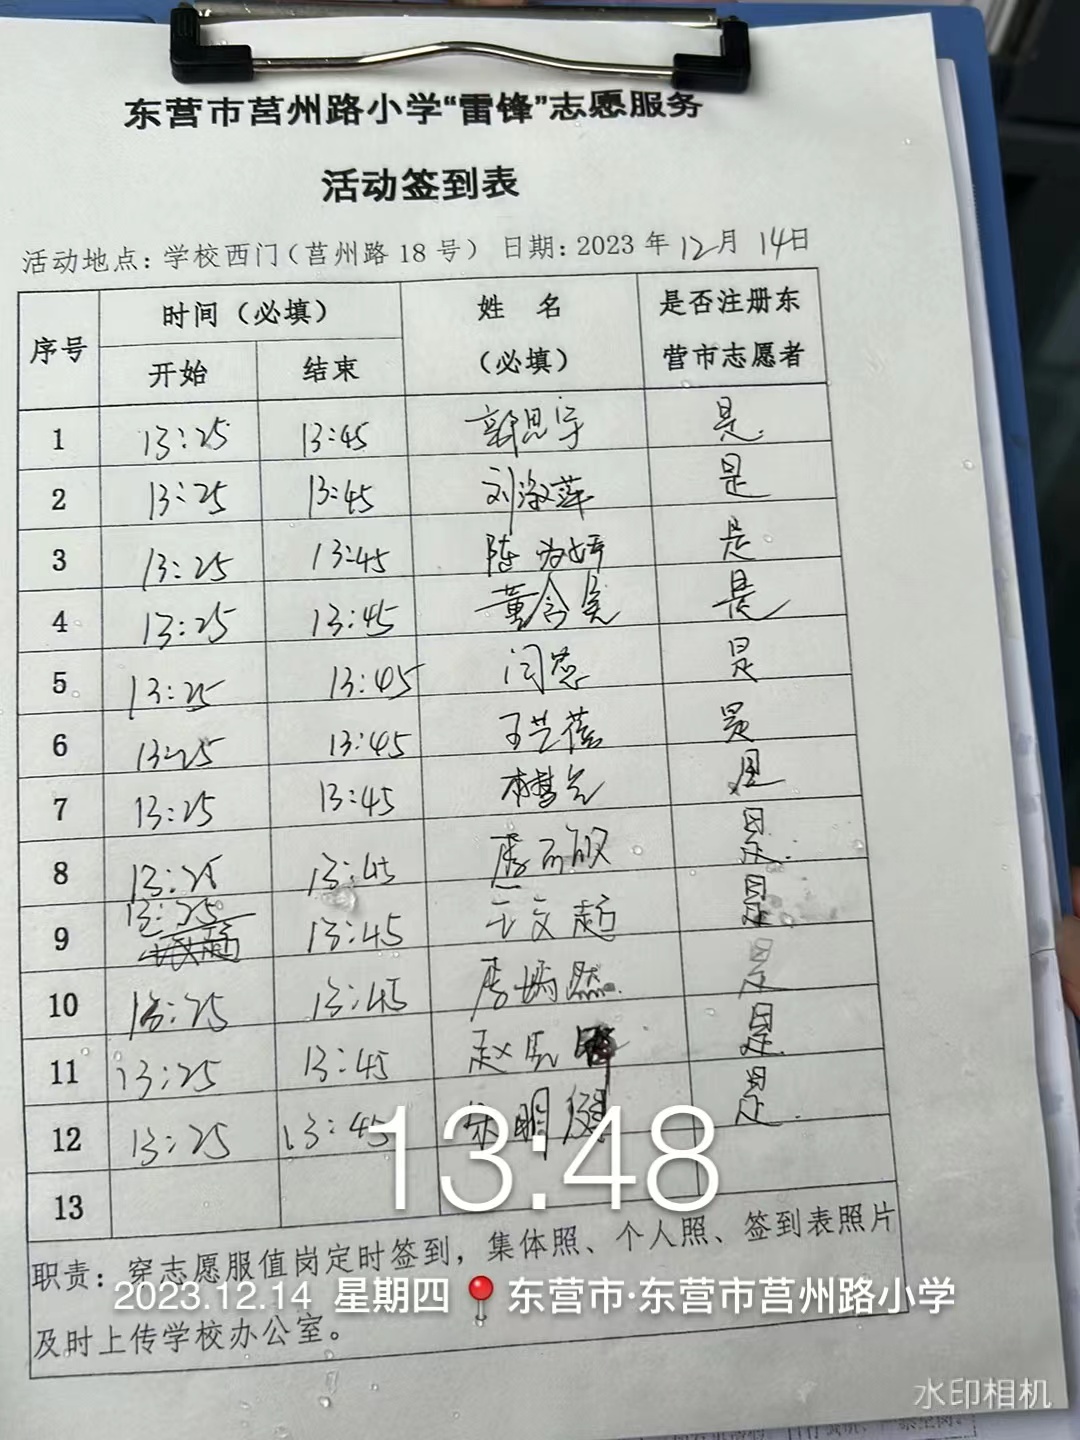 东营市莒州路小学“雷锋”志愿服务
活动签到表
活动地点：学校西门（莒州路 18 号） 日期：2023 年 12月 14日
序号 时间（必填） 姓 名（必填） 是否注册东营市志愿者
开始 结束
1 13:25 13:45 郭思宇 是
2 13:25 13:45 刘淑萍 是
3 13:25 13:45 陈 是
4 13:25 13:45 董含 是
5 13:25 13:45 闫蕊 是
6 13:25 13:45 王艺蓓 是
7 13:25 13:45 是
8 13:25 13:45 是
9 13:25 13:45 王文超 是
10 13:25 13:45 嫣然 是
11 13:25 13:45 赵 是
12 13:25 13:45 明 是
13
13:48
职责：穿志愿服值岗定时签到，集体照、个人照、签到表照片
2023.12.14 星期四 东营市·东营市莒州路小学
及时上传学校办公室。
水印相机